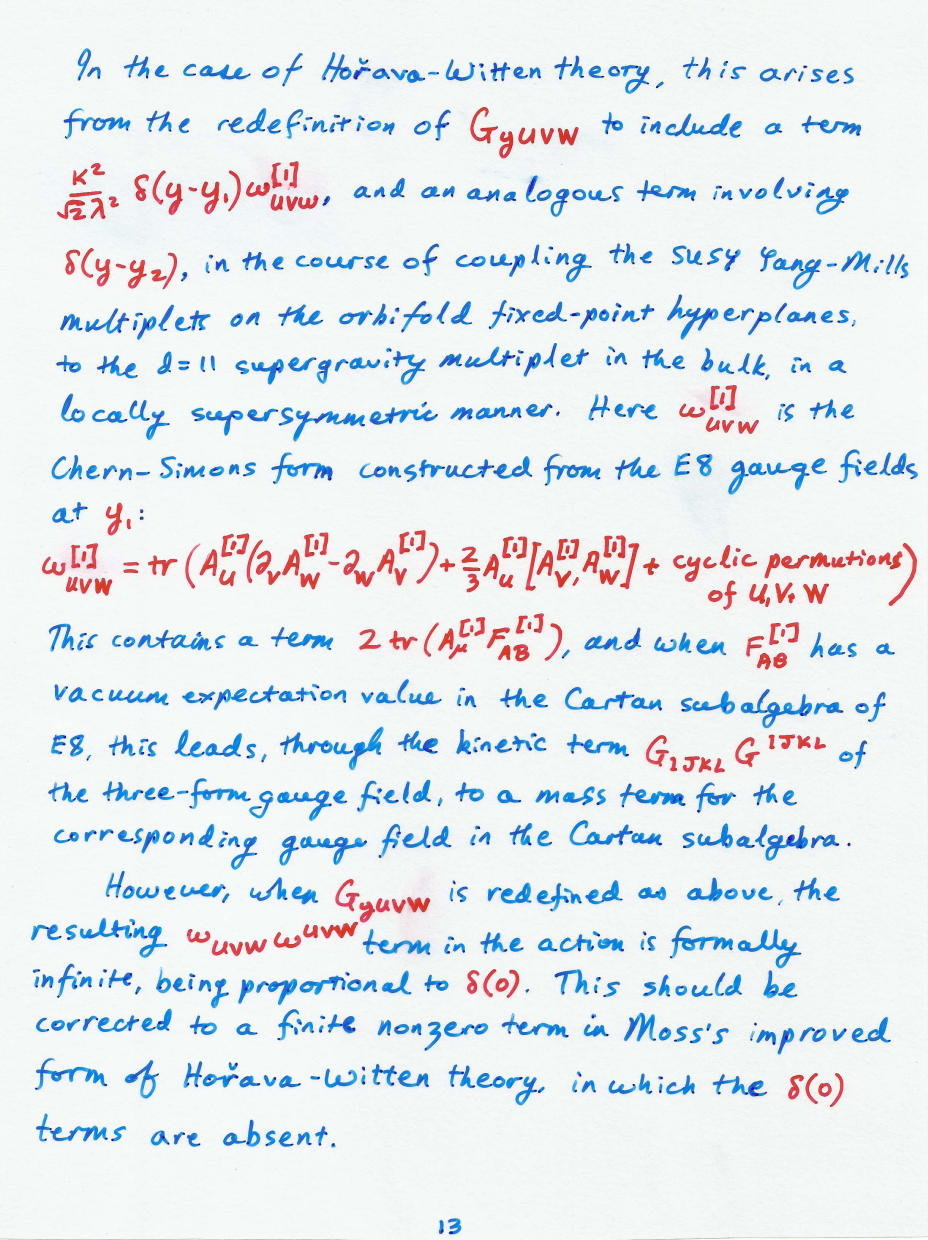 In the case of Hořava-Witten theory, this arises
from the redefinition of G_{yUVW} to include a term
\frac{κ^2}{\sqrt{2}λ^2} δ(y-y_1)ω^{[1]}_{UVW}, and an analogous term involving
δ(y-y_2), in the course of coupling the SUSY Yang-Mills
multiplets on the orbifold fixed-point hyperplanes,
to the d=11 supergravity multiplet in the bulk, in a
locally supersymmetric manner. Here ω^{[1]}_{UVW} is the
Chern-Simons form constructed from the E8 gauge fields
at y_1:
ω^{[1]}_{UVW} = tr (A^{[1]}_U(∂_V A^{[1]}_W - ∂_W A^{[1]}_V) + \frac{2}{3} A^{[1]}_U [A^{[1]}_V, A^{[1]}_W] + cyclic permutions
of U, V, W)
This contains a term 2 tr (A^{[1]}_μ F^{[1]}_{AB}), and when F^{[1]}_{AB} has a
vacuum expectation value in the Cartan subalgebra of
E8, this leads, through the kinetic term G_{IJKL} G^{IJKL} of
the three-form gauge field, to a mass term for the
corresponding gauge field in the Cartan subalgebra.
However, when G_{yUVW} is redefined as above, the
resulting ω_{UVW} ω^{UVW} term in the action is formally
infinite, being proportional to δ(0). This should be
corrected to a finite nonzero term in Moss's improved
form of Hořava-Witten theory, in which the δ(0)
terms are absent.
13